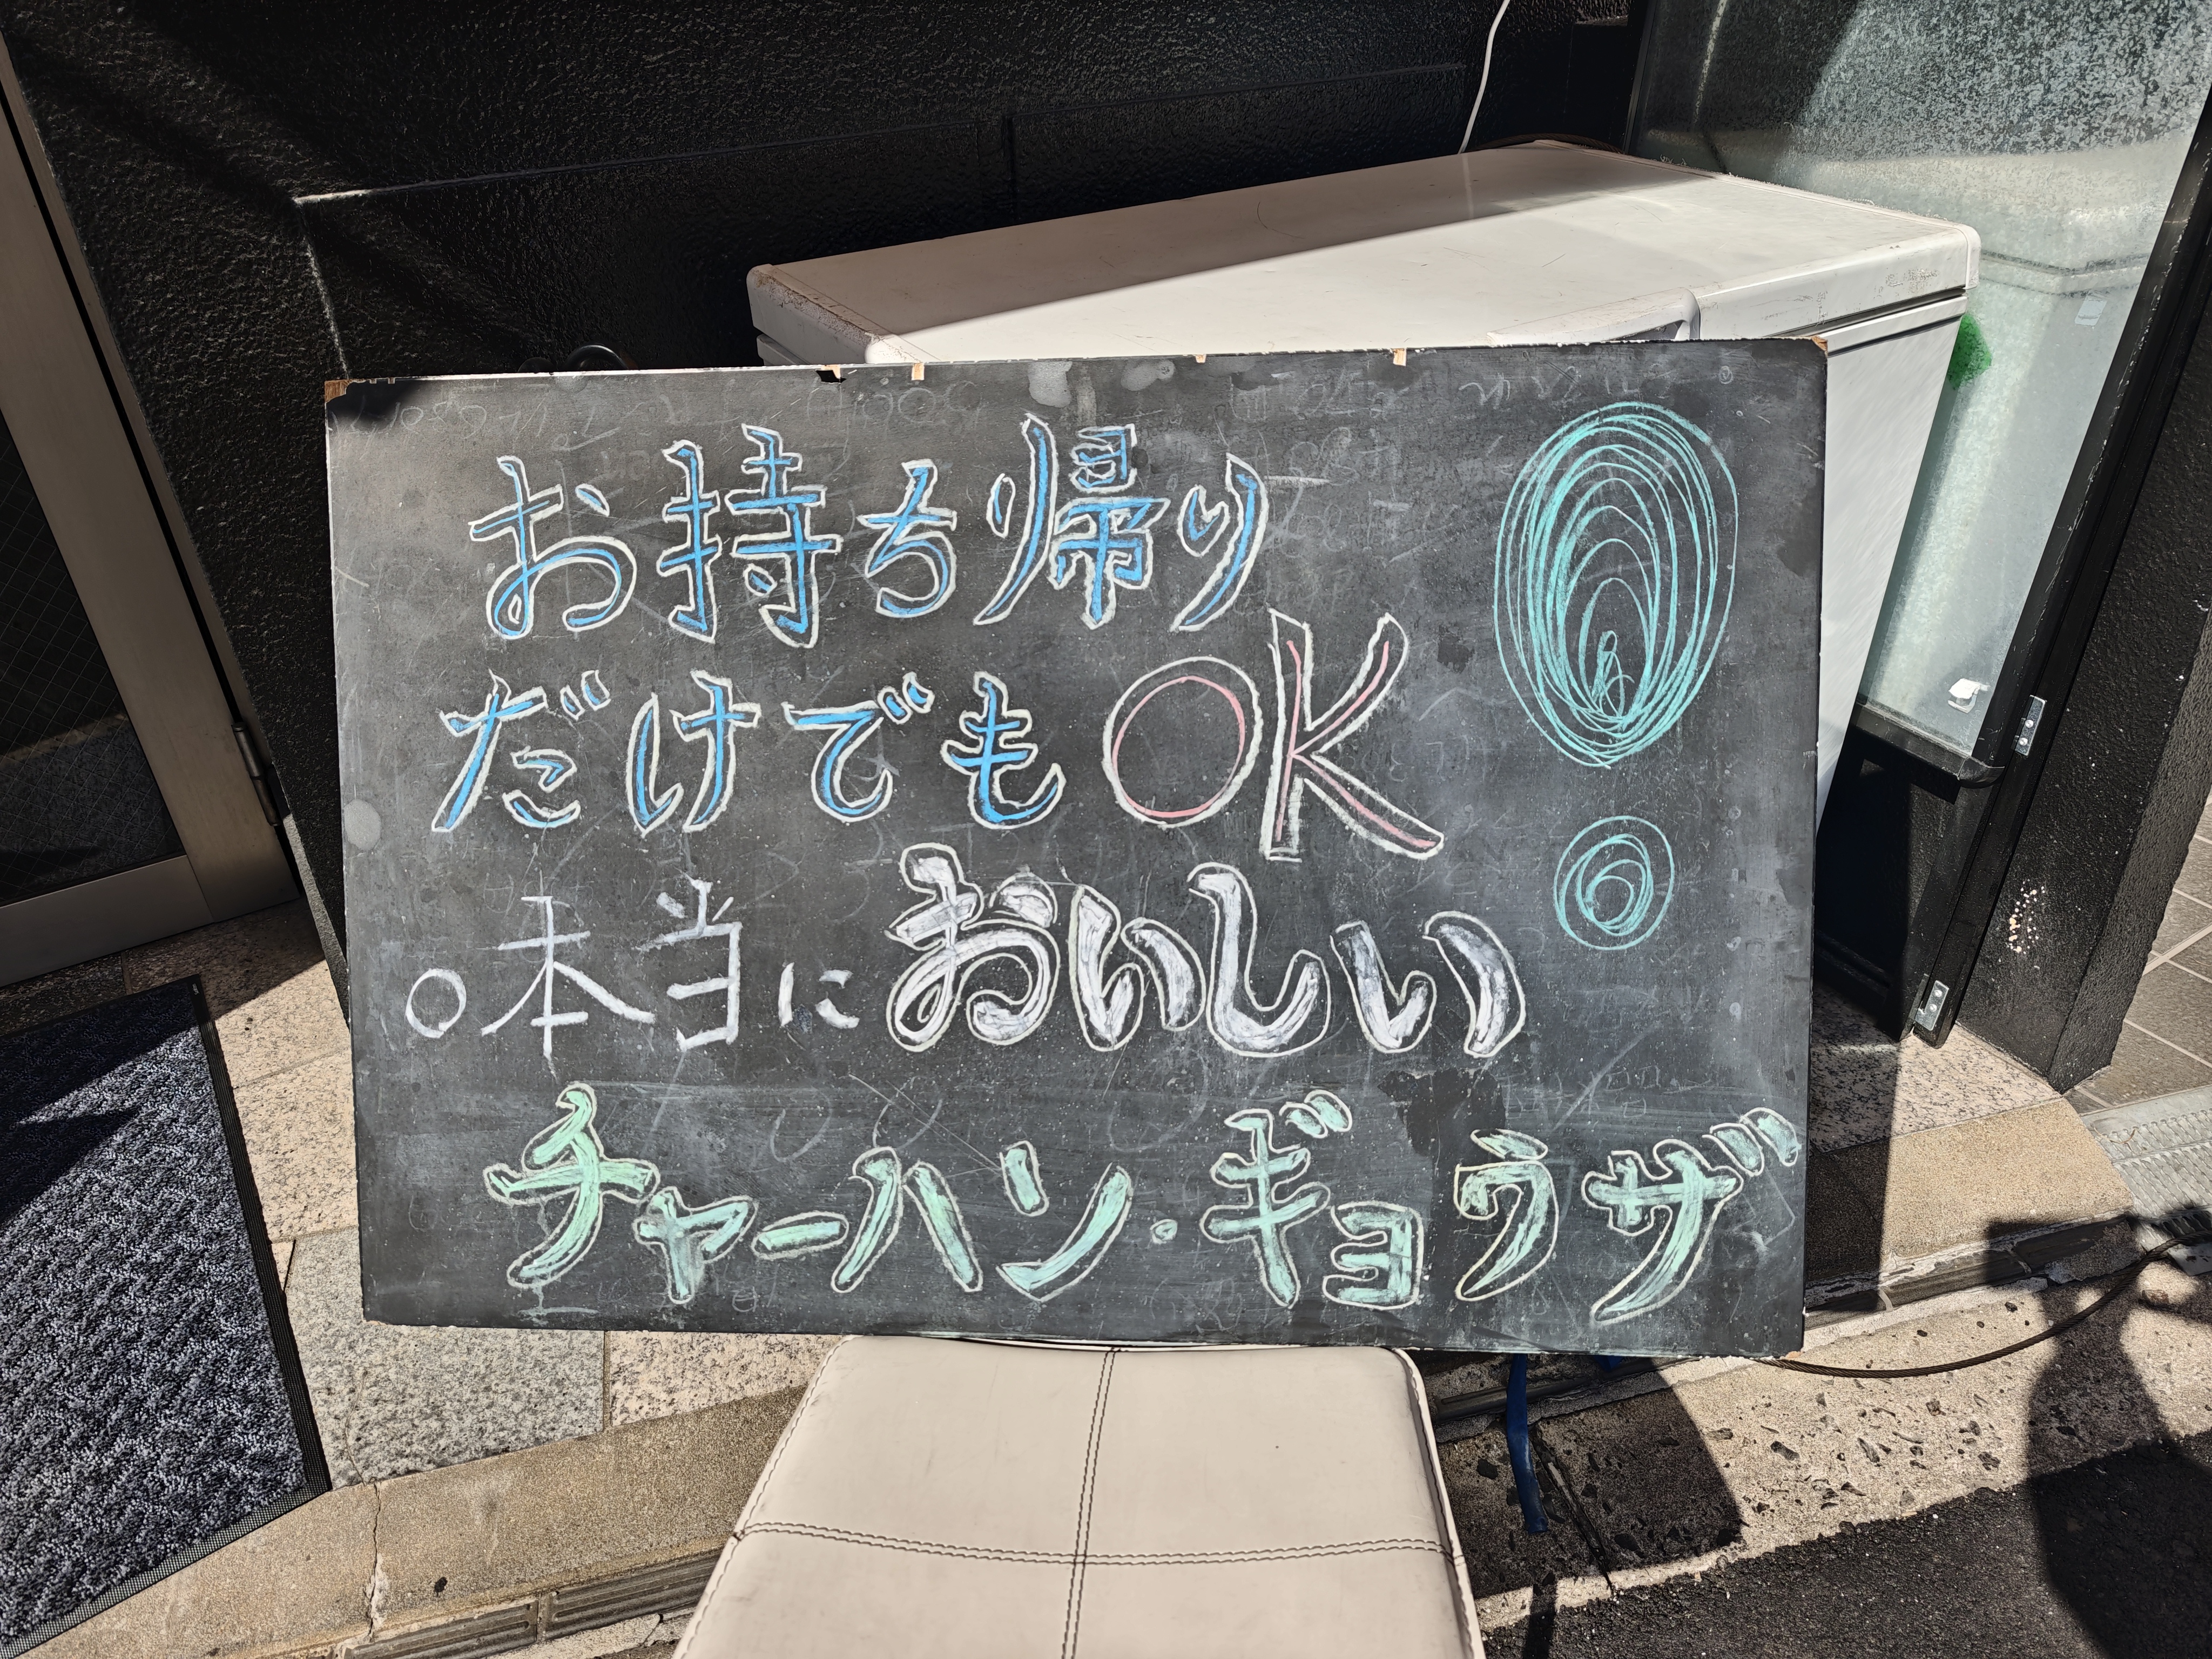 お持ち帰り
だけでもOK
○本当においしい
チャーハン・ギョウザ